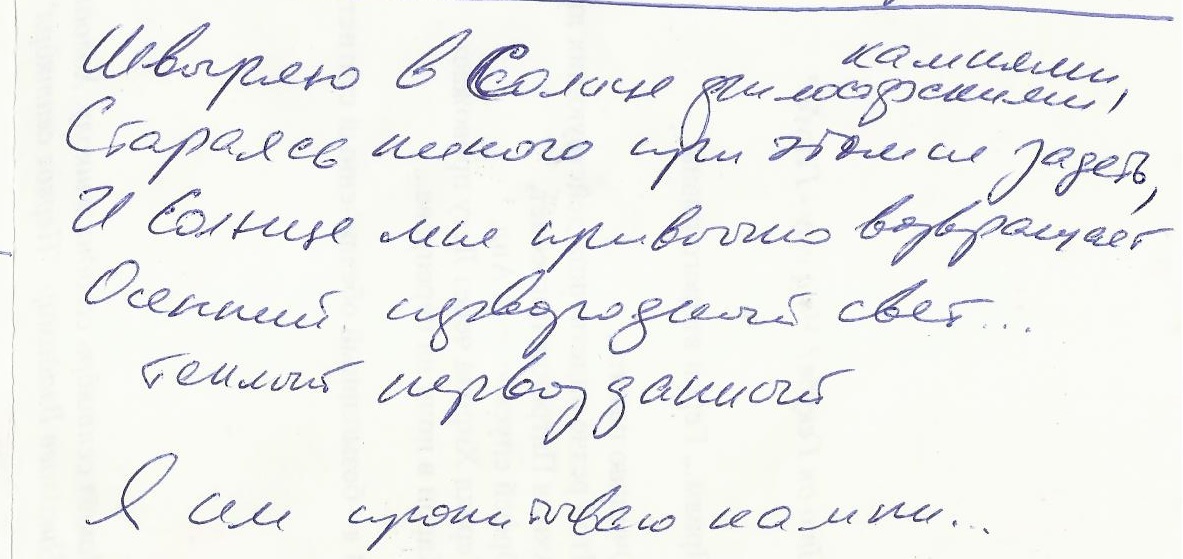 Швыряю в Солнце философскими камнями,
Стараясь никого при этом не задеть,
И Солнце мне привычно возвращает
Осенний изводродный свет...
теплый первозданный
Я им пропитываю камни...